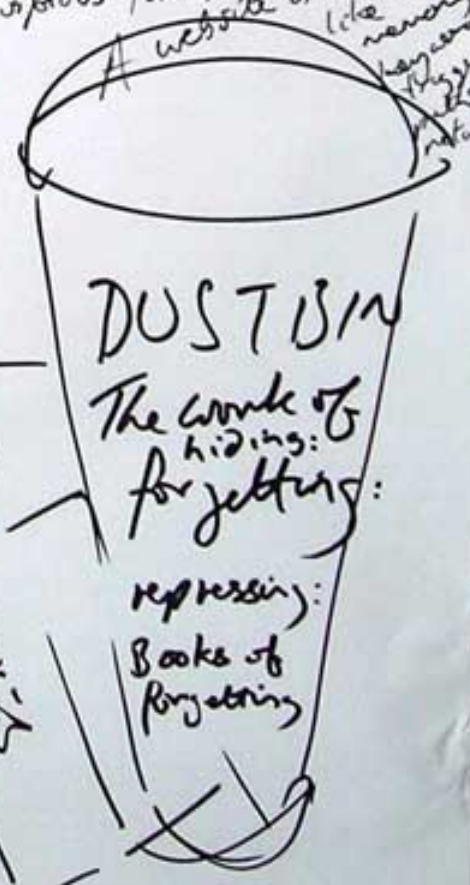 A website
like
DUSTBIN
The work of
hiding:
forgetting:
repressing:
Books of
forgetting